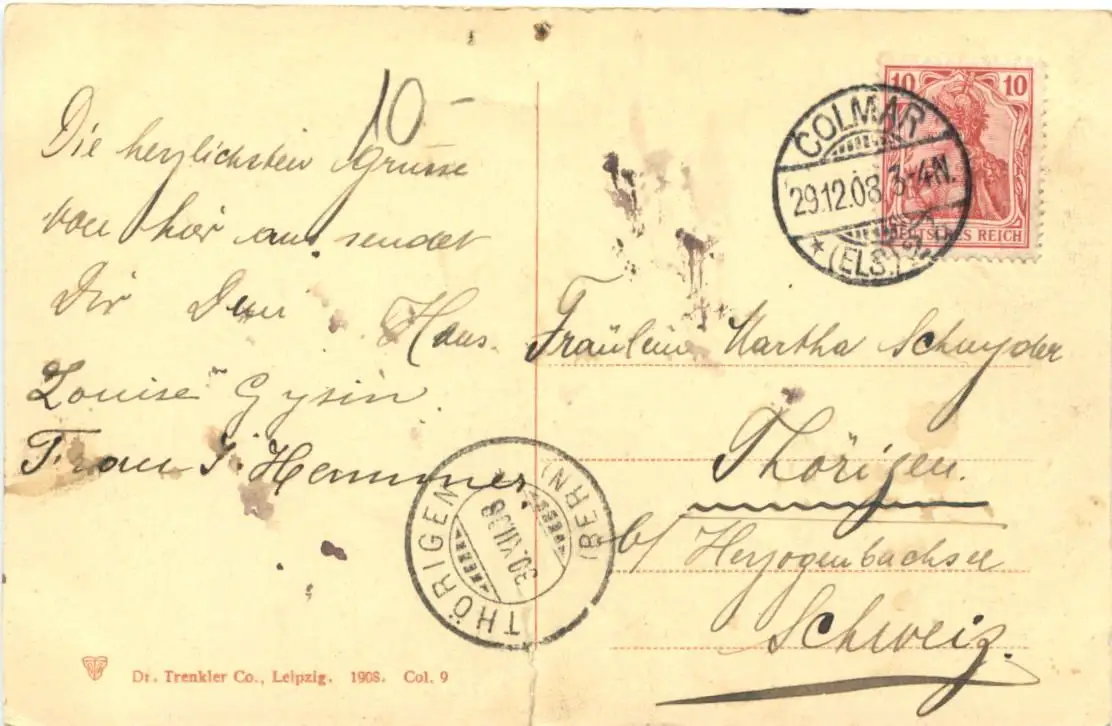 10
Die herzlichsten Grüsse
von hier aus sendet
Dir Dein Hans.
Louise Gysin.
Frau J. Hammer
10 10
DEUTSCHES REICH
COLMAR
29.12.08 3-4N.
* (ELS.)
Fräulein Martha Schnyder
Thörigen.
b/ Herzogenbuchsee
Schweiz.
THÖRIGEN (BERN)
30.XII.08
Dr. Trenkler Co., Leipzig. 1908. Col. 9